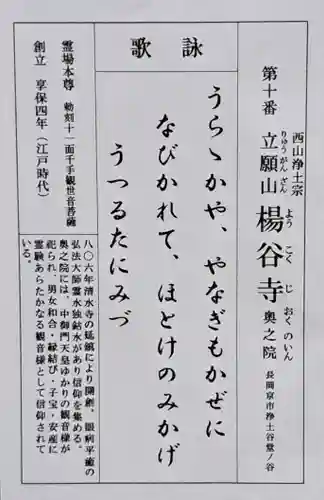 西山浄土宗
第十番 立願山 楊谷寺 奥之院 長岡京市浄土谷堂ノ谷
りゅうがんざん よう こく じ おく のいん
詠歌
うらゝかや、やなぎもかぜに
なびかれて、ほとけのみかげ
うつるたにみづ
霊場本尊 勅刻十一面千手観世音菩薩
創立 享保四年(江戸時代)
八〇六年清水寺の延鎮により開創、眼病平癒の
弘法大師霊水独鈷水があり信仰を集める。
奥之院には、中御門天皇ゆかりの観音様が
祀られ、男女和合・縁結び・子宝・安産に
霊験あらたかなる観音様として信仰されて
いる。